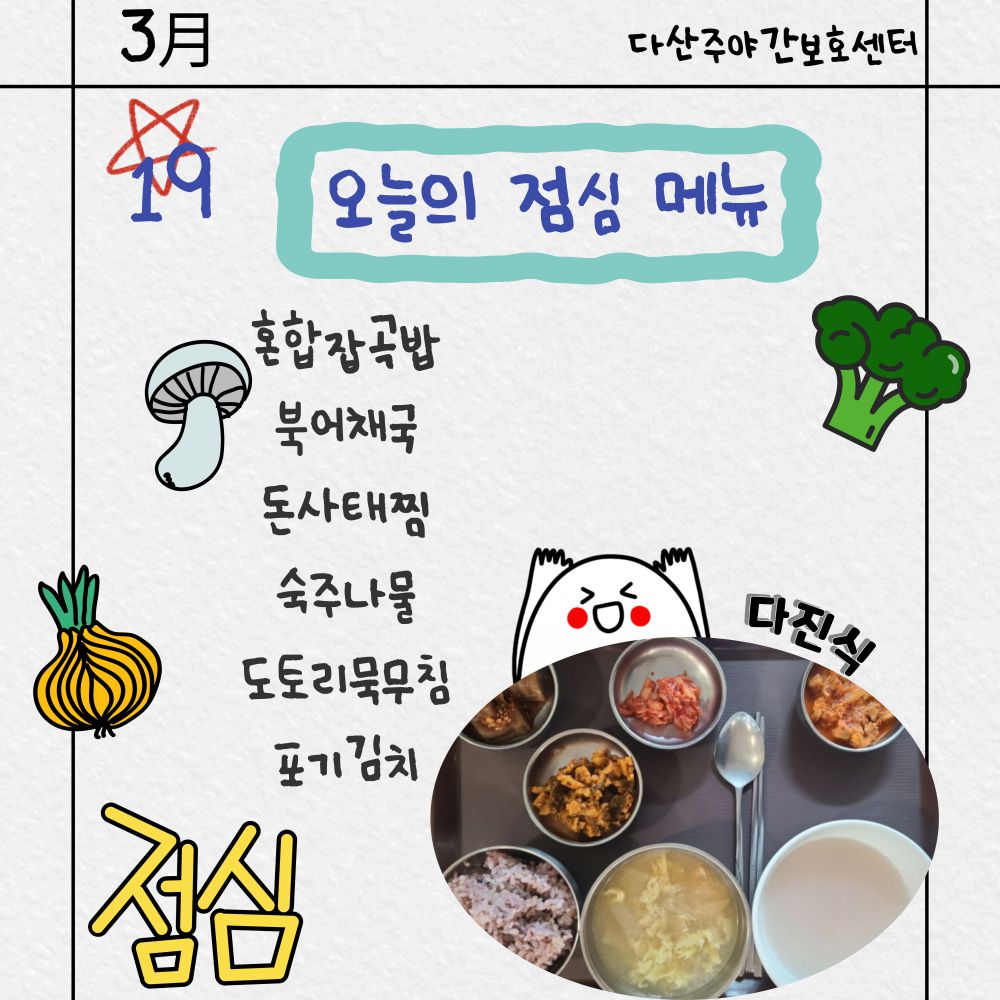 3月
다산주야간보호센터
19
오늘의 점심 메뉴
혼합잡곡밥
북어채국
돈사태찜
숙주나물
도토리묵무침
포기김치
다진식
점심